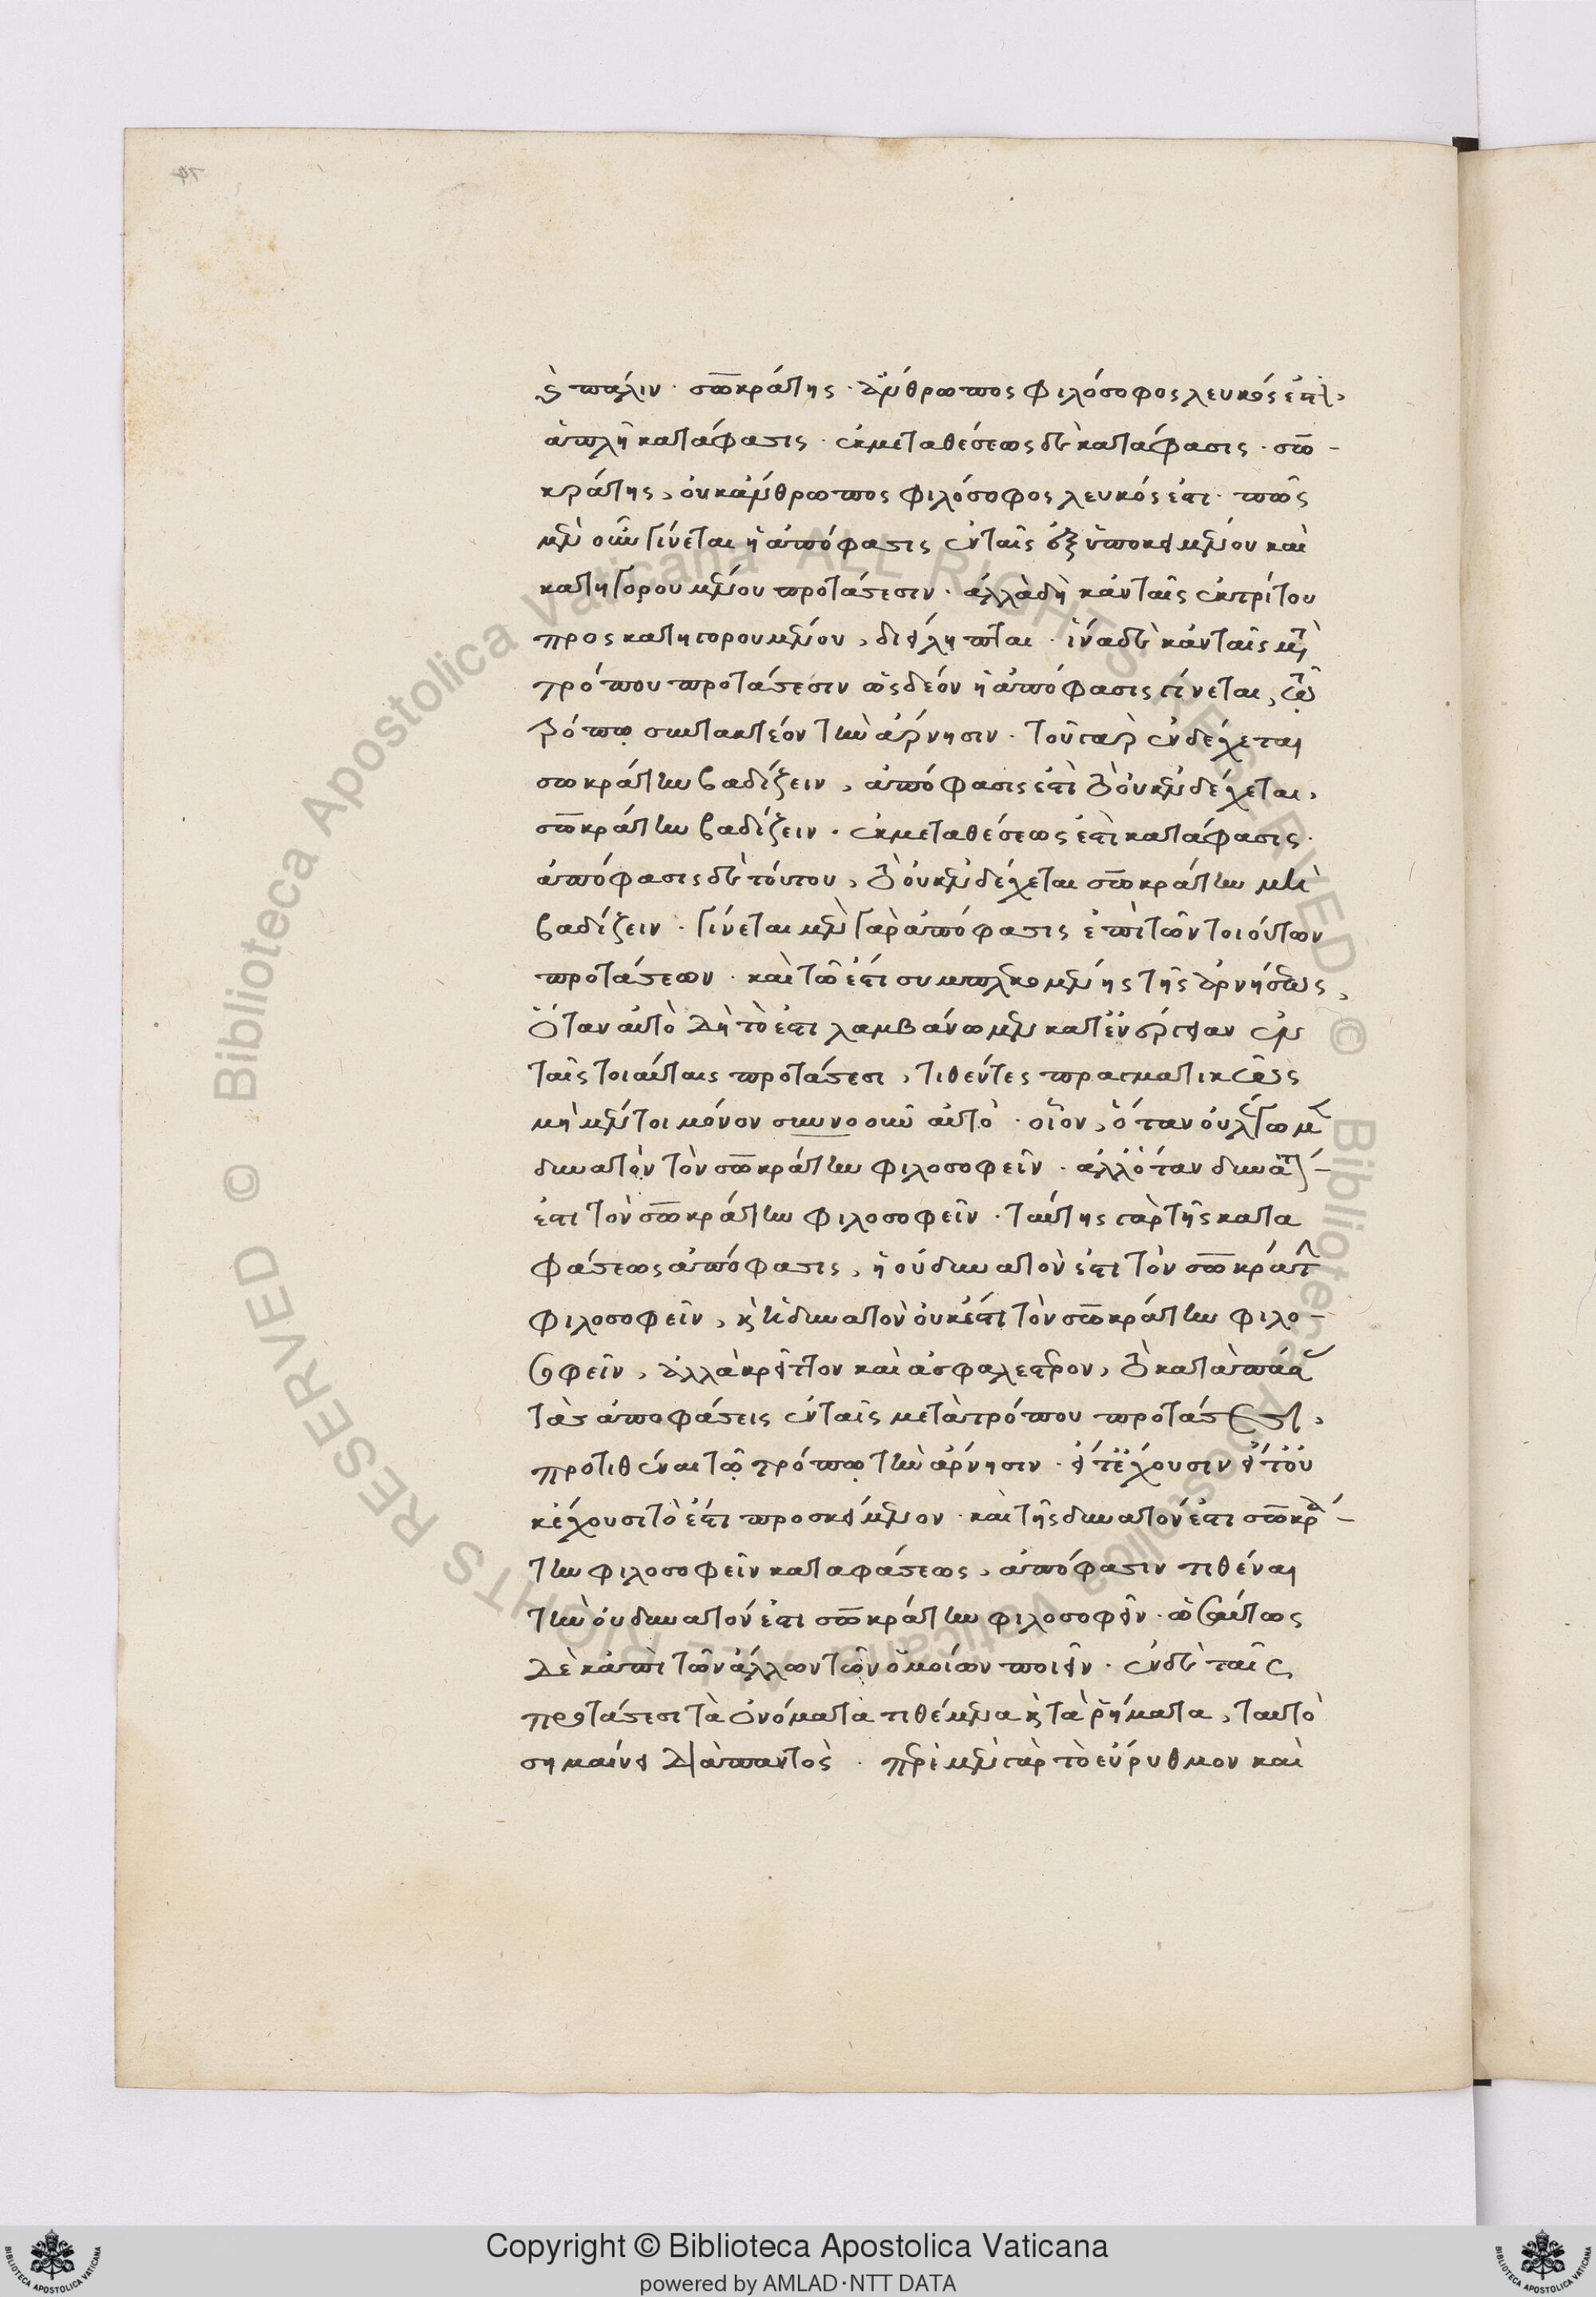 καὶ πάλιν · σωκράτης · ἄνθρωπος φιλόσοφος λευκός ἐστι,
ἁπλῆ κατάφασις · ἐκ μεταθέσεως δὲ κατάφασις · σω-
κράτης, οὐκ ἄνθρωπος φιλόσοφος λευκός ἐστι · πῶς
μὲν οὖν γίνεται ἡ ἀπόφασις ἐν ταῖς ἐξ ὑποκειμένου καὶ
κατηγορουμένου προτάσεσιν · ἀλλὰ δὴ κἀν ταῖς ἐκ τρίτου
προσκατηγορουμένου, διείληπται · ἵνα δὲ κἀν ταῖς μετὰ
τρόπου προτάσεσιν ὡς δέον ἡ ἀπόφασις γίνεται, τῷ
τρόπῳ συντακτέον τὴν ἄρνησιν · τοῦ γὰρ ἐνδέχεται
σωκράτην βαδίζειν, ἀπόφασις ἐστὶ τὸ οὐκ ἐνδέχεται,
σωκράτην βαδίζειν · ἐκ μεταθέσεως ἐστὶ κατάφασις ·
ἀπόφασις δὲ τούτου, τὸ οὐκ ἐνδέχεται σωκράτην μὴ
βαδίζειν · γίνεται μὲν γὰρ ἀπόφασις ἐπὶ τῶν τοιούτων
προτάσεων · καὶ τῷ ἐστι συμπλεκομένης τῆς ἀρνήσεως,
ὅταν αὐτὸ δὴ τὸ ἐστι λαμβάνωμεν κατ' ἐνέργειαν ἐν
ταῖς τοιαύταις προτάσεσι, τιθέντες πραγματικῶς
μὴ μέντοι μόνον συννοοῦν αὐτό · οἷον, ὅταν οὐ λέγωμεν
δυνατὸν τὸν σωκράτην φιλοσοφεῖν · ἀλλ' ὅταν δυνατόν-
ἐστι τὸν σωκράτην φιλοσοφεῖν · ταύτης γὰρ τῆς κατα
φάσεως ἀπόφασις, ἢ οὐ δυνατὸν ἐστι τὸν σωκράτην
φιλοσοφεῖν, καὶ ἡ δυνατὸν οὐκ ἐστι τὸν σωκράτην φιλο-
σοφεῖν, ἀλλὰ κρεῖττον καὶ ἀσφαλέστερον, τὸ κατὰ πάσας
τὰς ἀποφάσεις ἐν ταῖς μετὰ τρόπου προτάσεσι,
προτιθέναι τῷ τρόπῳ τὴν ἄρνησιν · εἴτ' ἔχουσιν εἴτ' οὐ
κ ἔχουσι τὸ ἐστι προσκείμενον · καὶ τῆς δυνατόν ἐστι σωκρά-
την φιλοσοφεῖν καταφάσεως, ἀπόφασιν τιθέναι
τὴν οὐ δυνατόν ἐστι σωκράτην φιλοσοφεῖν · ὡσαύτως
δὲ κἀπὶ τῶν ἄλλων τῶν ὁμοίων ποιεῖν · ἐν δὲ ταῖς
προτάσεσι τὰ ὀνόματα τιθέμενα καὶ τὰ ῥήματα, ταυτὸ
σημαίνει διαπαντὸς · περὶ μὲν γὰρ τὸ εὔρυθμον καὶ